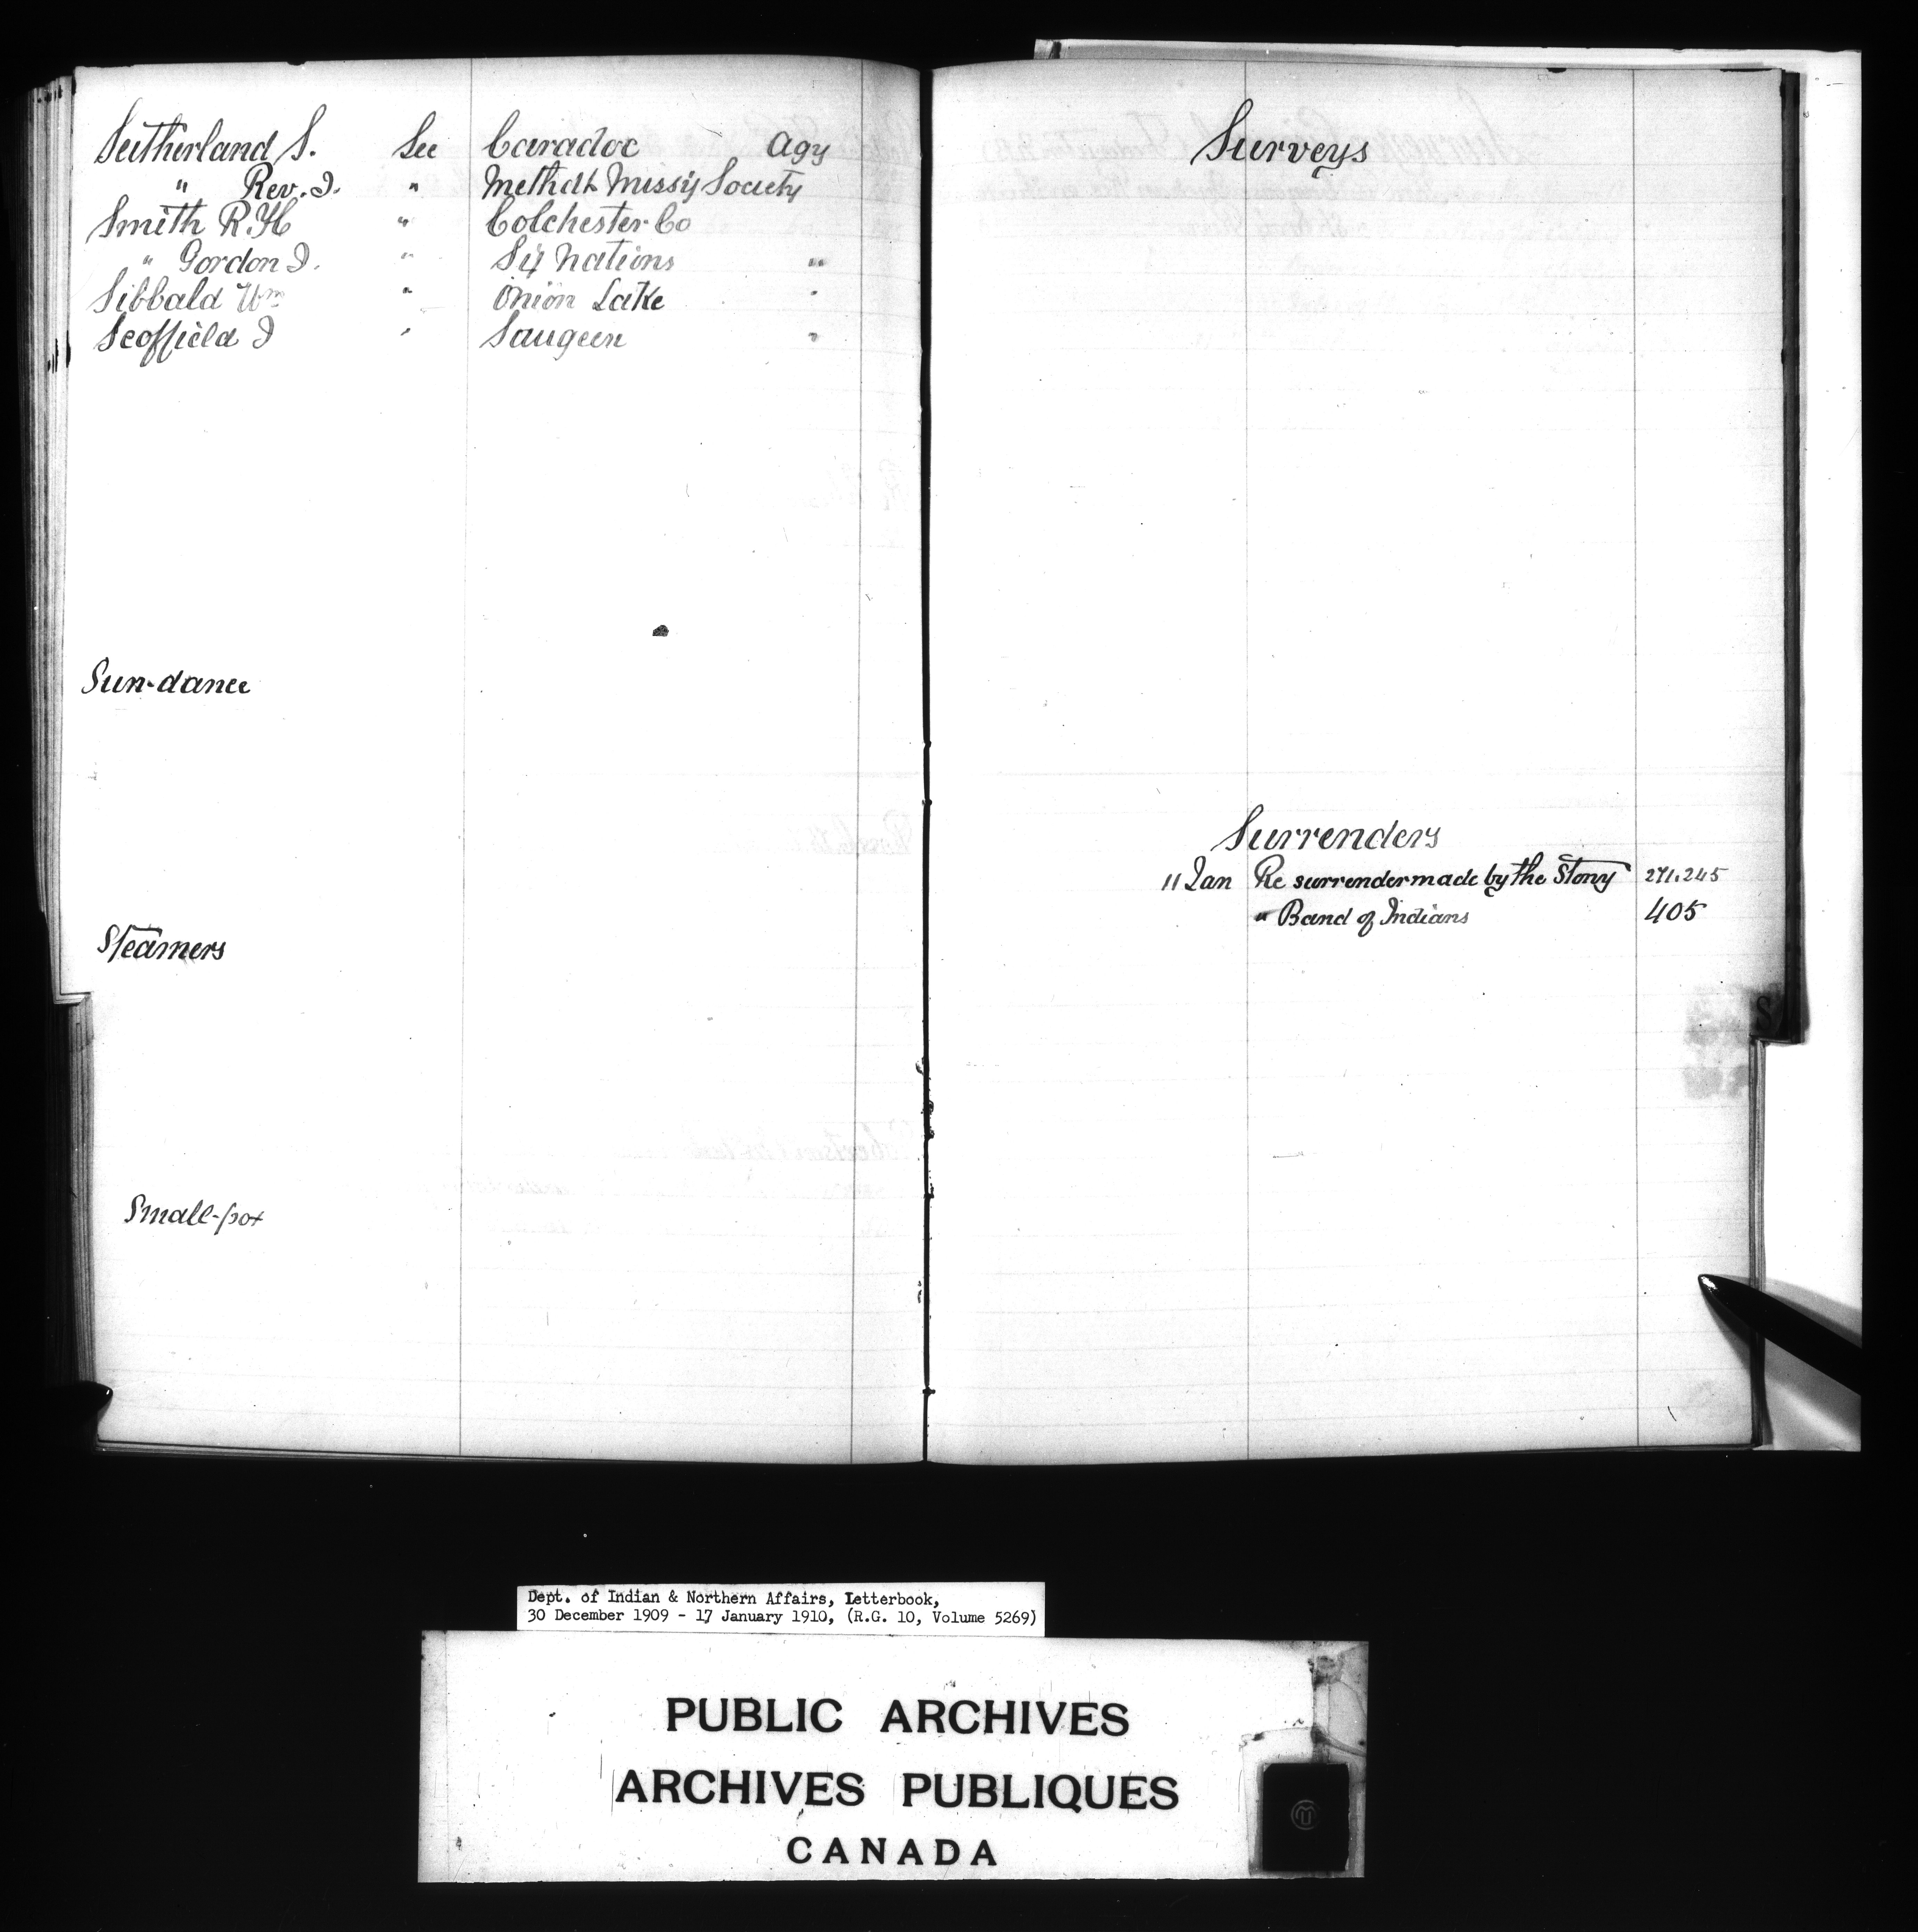 Sutherland S. See Caradoc Agy
" Rev. J. " Methdt Missy Society
Smith R H " Colchester Co
" Gordon J. " Six Nations "
Sibbald Wm " Onion Lake "
Scoffield J " Saugeen "
Sun-dance
Steamers
Small-pox
Surveys
Surrenders
11 Jan Re surrender made by the Stony 271.245
" Band of Indians 405
S
Dept. of Indian & Northern Affairs, Letterbook,
30 December 1909 - 17 January 1910, (R.G. 10, Volume 5269)
PUBLIC ARCHIVES
ARCHIVES PUBLIQUES
CANADA